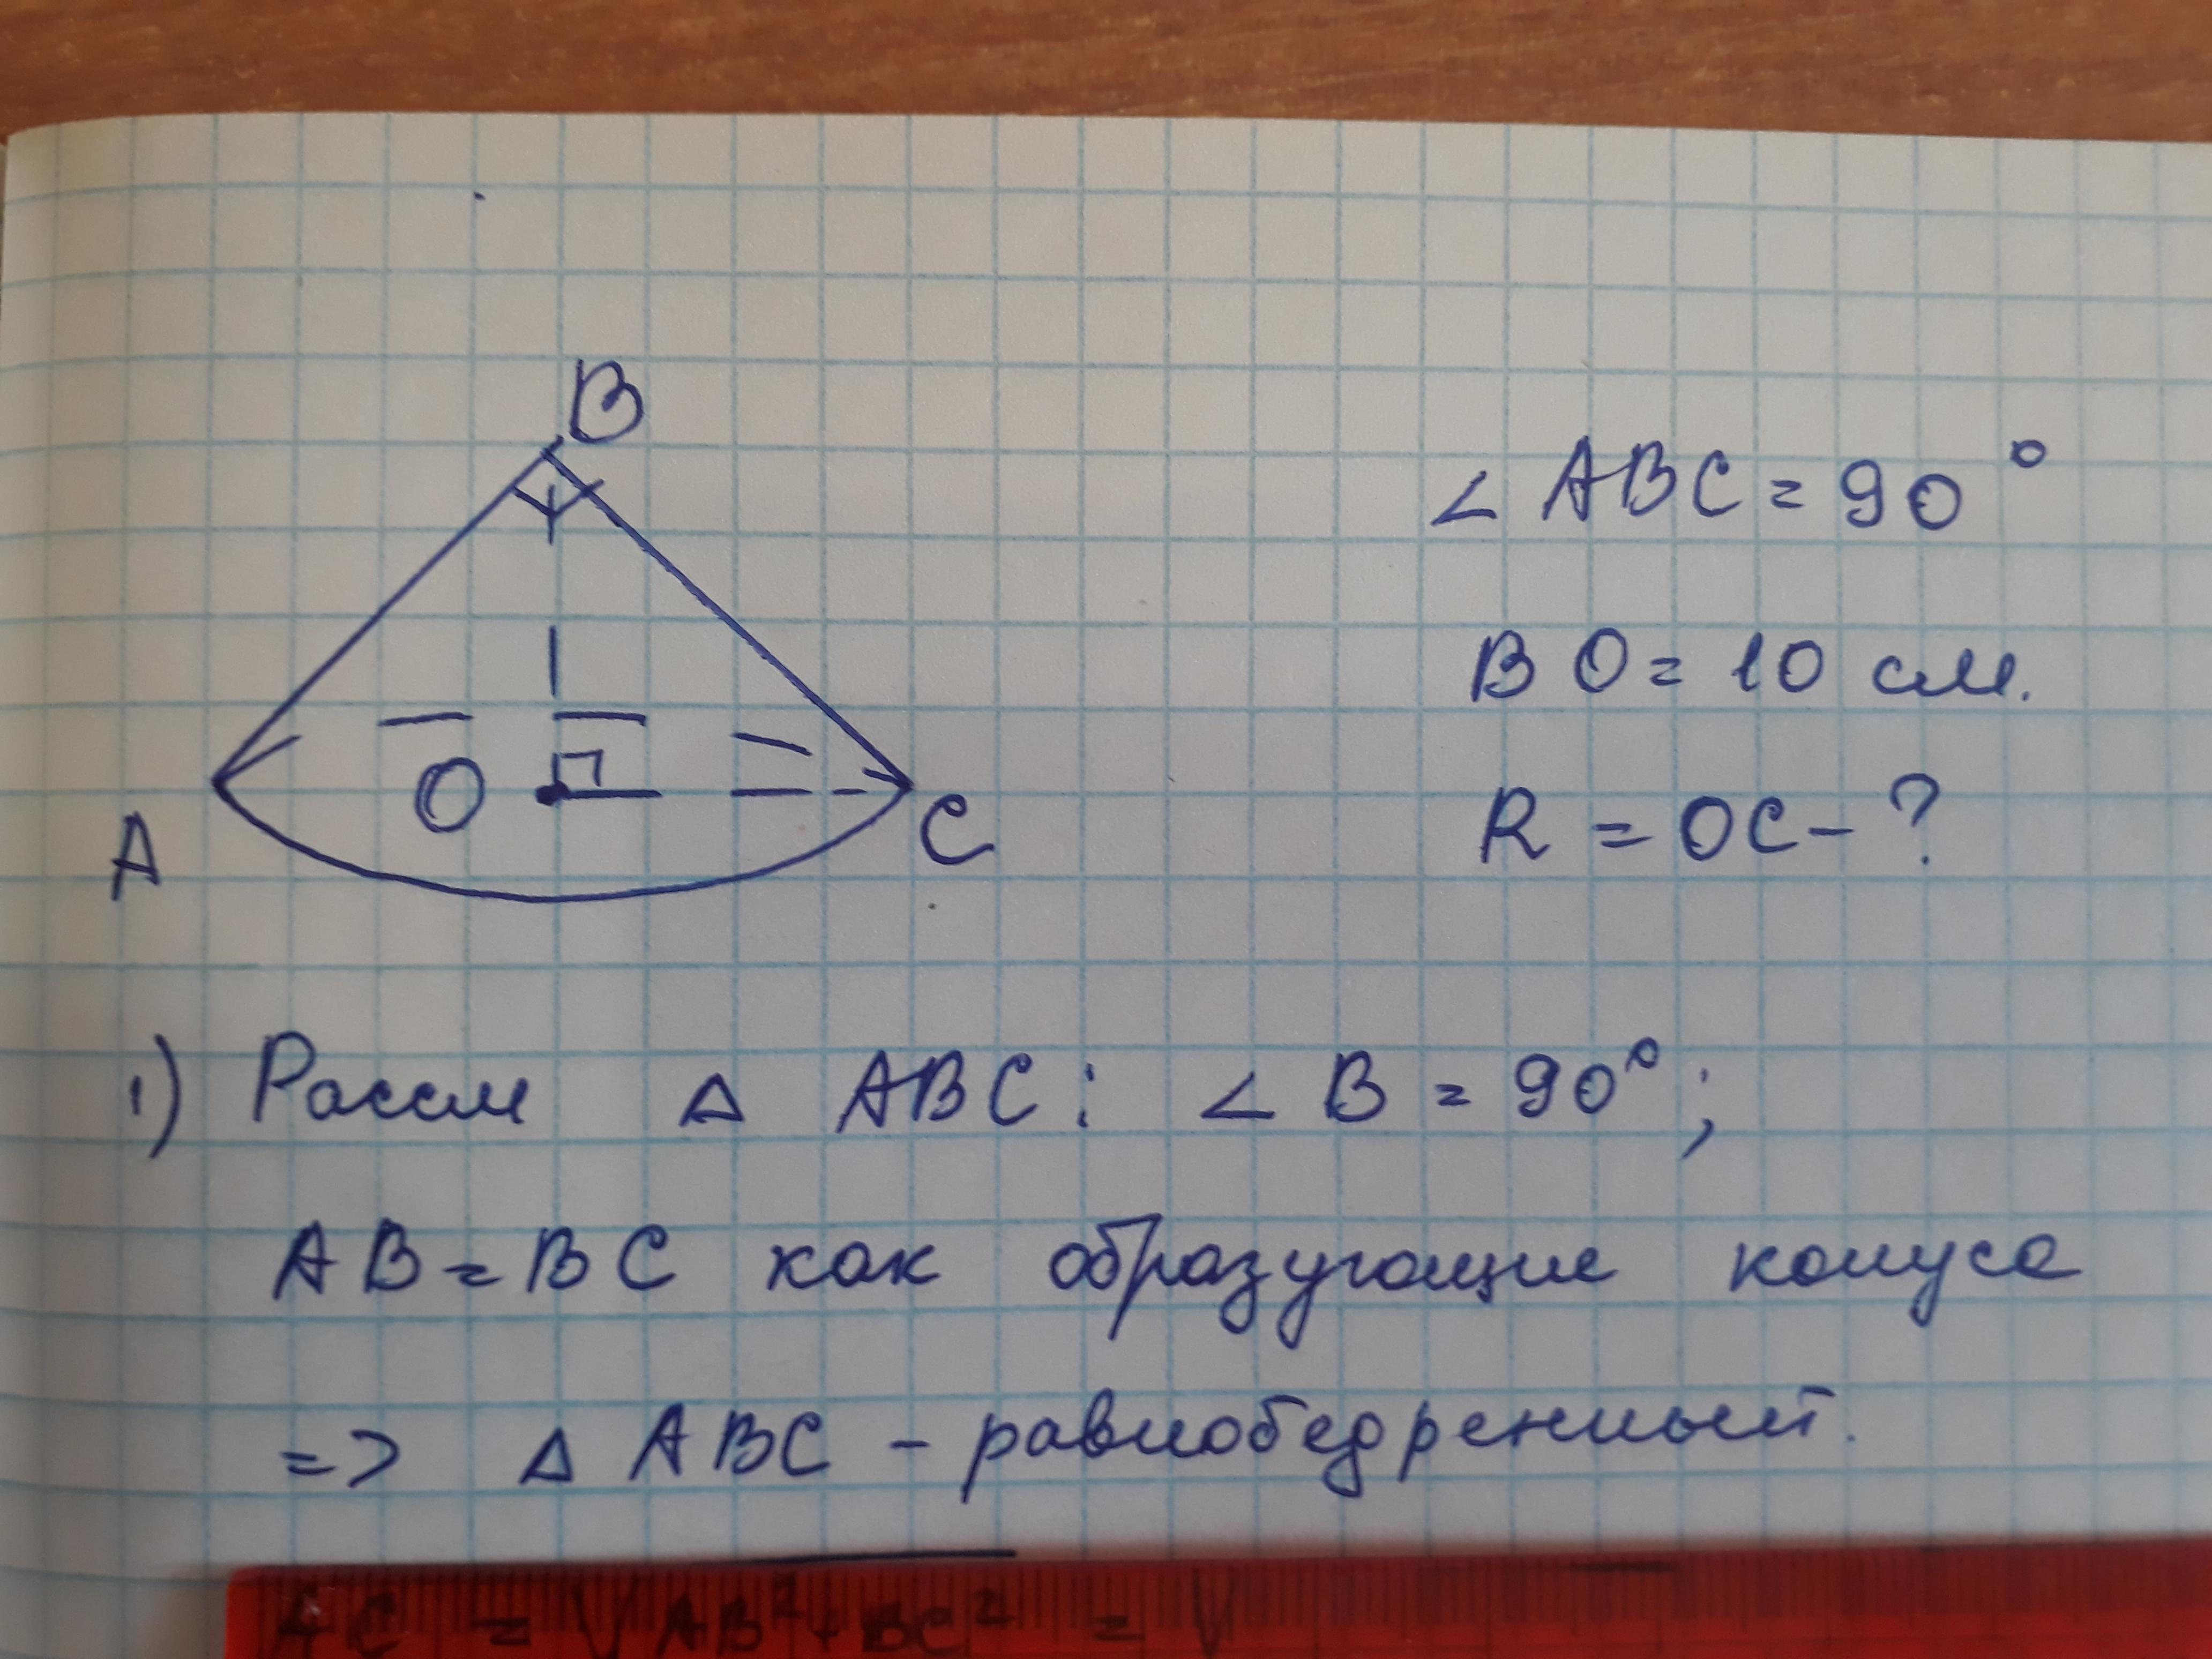 B
A
O
C
∠ ABC = 90°
BO = 10 см.
R = OC - ?
1) Рассм △ ABC : ∠ B = 90° ;
AB = BC как образующие конуса
=> △ ABC - равнобедренный.
AC = √AB² + BC² = √